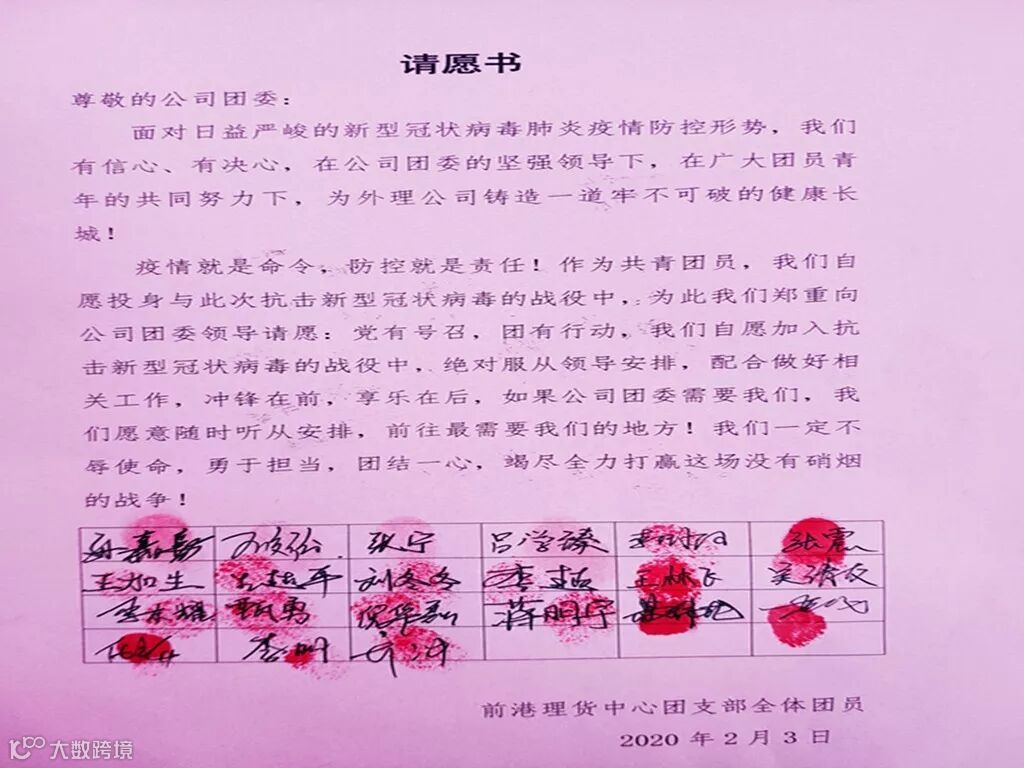 请愿书
尊敬的公司团委：
面对日益严峻的新型冠状病毒肺炎疫情防控形势，我们
有信心、有决心，在公司团委的坚强领导下，在广大团员青
年的共同努力下，为外理公司铸造一道牢不可破的健康长
城！
疫情就是命令，防控就是责任！作为共青团员，我们自
愿投身与此次抗击新型冠状病毒的战役中，为此我们郑重向
公司团委领导请愿：党有号召，团有行动，我们自愿加入抗
击新型冠状病毒的战役中，绝对服从领导安排，配合做好相
关工作，冲锋在前，享乐在后，如果公司团委需要我们，我
们愿意随时听从安排，前往最需要我们的地方！我们一定不
辱使命，勇于担当，团结一心，竭尽全力打赢这场没有硝烟
的战争！
张宁 张震
王旭生 刘冬冬 王林飞
甄勇 蒋明宇
前港理货中心团支部全体团员
2020 年 2 月 3 日
大数跨境